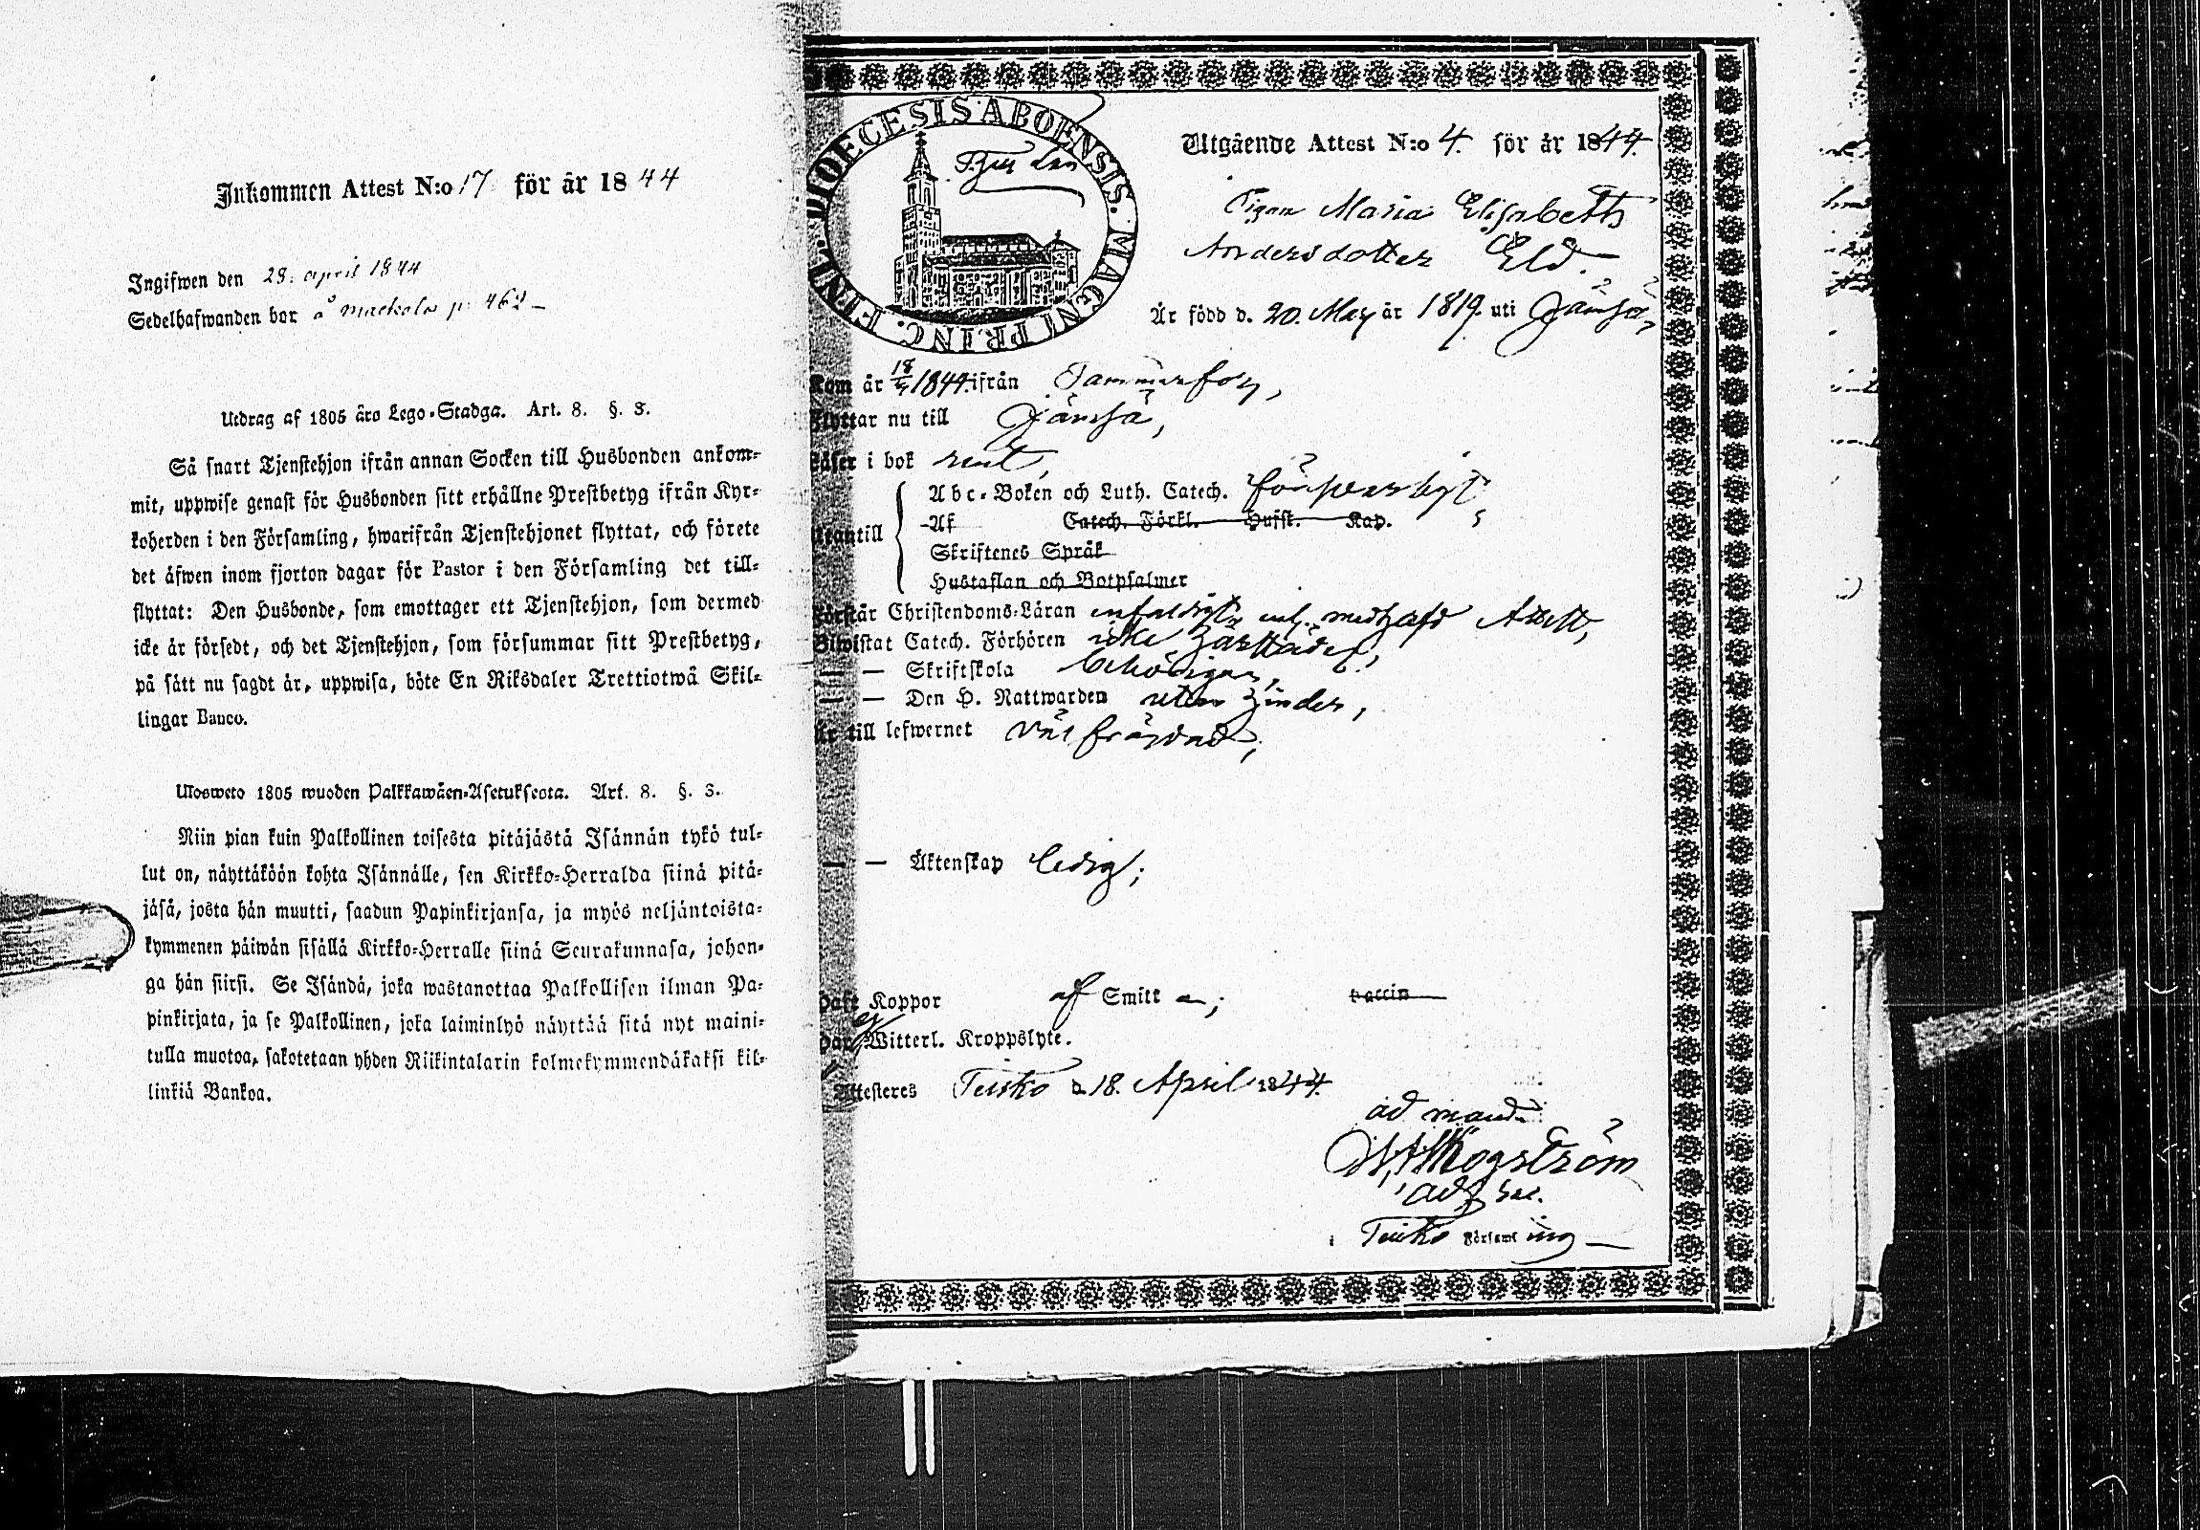 Inkommen Attest N:o 17 för år 1844
Ingifwen den 28. april 1844
Sedelhafwanden bor å Mackala p. 462
Utdrag af 1805 års Lego-Stadga. Art. 8. §. 3.
Så snart Tjenstehjon ifrån annan Socken till Husbonden ankom-
mit, uppwise genast för Husbonden sitt erhållne Prestbetyg ifrån Kyr-
koherden i den Församling, hwarifrån Tjenstehjonet flyttat, och förete
det äfwen inom fjorton dagar för Pastor i den Församling det till-
flyttat: Den Husbonde, som emottager ett Tjenstehjon, som dermed
icke är försedt, och det Tjenstehjon, som försummar sitt Prestbetyg,
på sätt nu sagdt är, uppwisa, böte En Riksdaler Trettiotwå Skil-
lingar Banco.
Ulosweto 1805 wuoden Palkkawäen-Asetuksesta. Art. 8. §. 3.
Niin pian kuin Palkollinen toisesta pitäjästä Isännän tykö tul-
lut on, näyttäköön kohta Isännälle, sen Kirkko-Herralda siinä pitä-
jäsä, josta hän muutti, saadun Papinkirjansa, ja myös neljäntoista-
kymmenen päiwän sisällä Kirkko-Herralle siinä Seurakunnasa, johon-
ga hän siirsi. Se Isändä, joka wastanottaa Palkollisen ilman Pa-
pinkirjata, ja se Palkollinen, joka laiminlyö näyttää sitä nyt maini-
tulla muotoa, sakotetaan yhden Riikintalarin kolmekymmendäkaksi kil-
linkiä Bankoa.
DIOECESIS ABOENSIS. MAGNI PRINC. FINL.
Utgående Attest N:o 4. för år 1844.
Pigan Maria Elisabeth
Andersdotter Eld.
Är född d. 20. May år 1819. uti Jämsä,
Kom år 18/4 1844. ifrån Tammerfors,
Flyttar nu till Jämsä,
Läser i bok rent,
Utantill
Abc-Boken och Luth. Catech. förswarligt,
Af Catech. Förkl. Hufst. Kap.
Skriftenes Språk
Hustaflan och Botpsalmer
Förstår Christendoms-Läran enfaldigt, enl. medhafd Attest,
Biwistat Catech. Förhören icke härstädes,
— — Skriftskola behörigen,
— — Den H. Nattwarden utan hinder,
Är till lefwernet wälfrägdad,
— — Äktenskap ledig;
Haft Koppor af Smitta;
vaccin
Har ej Witterl. Kroppslyte.
Attesteres Teisko d. 18. April 1844.
ad mand.
Skogström
adj. sac.
i Teisko Församling